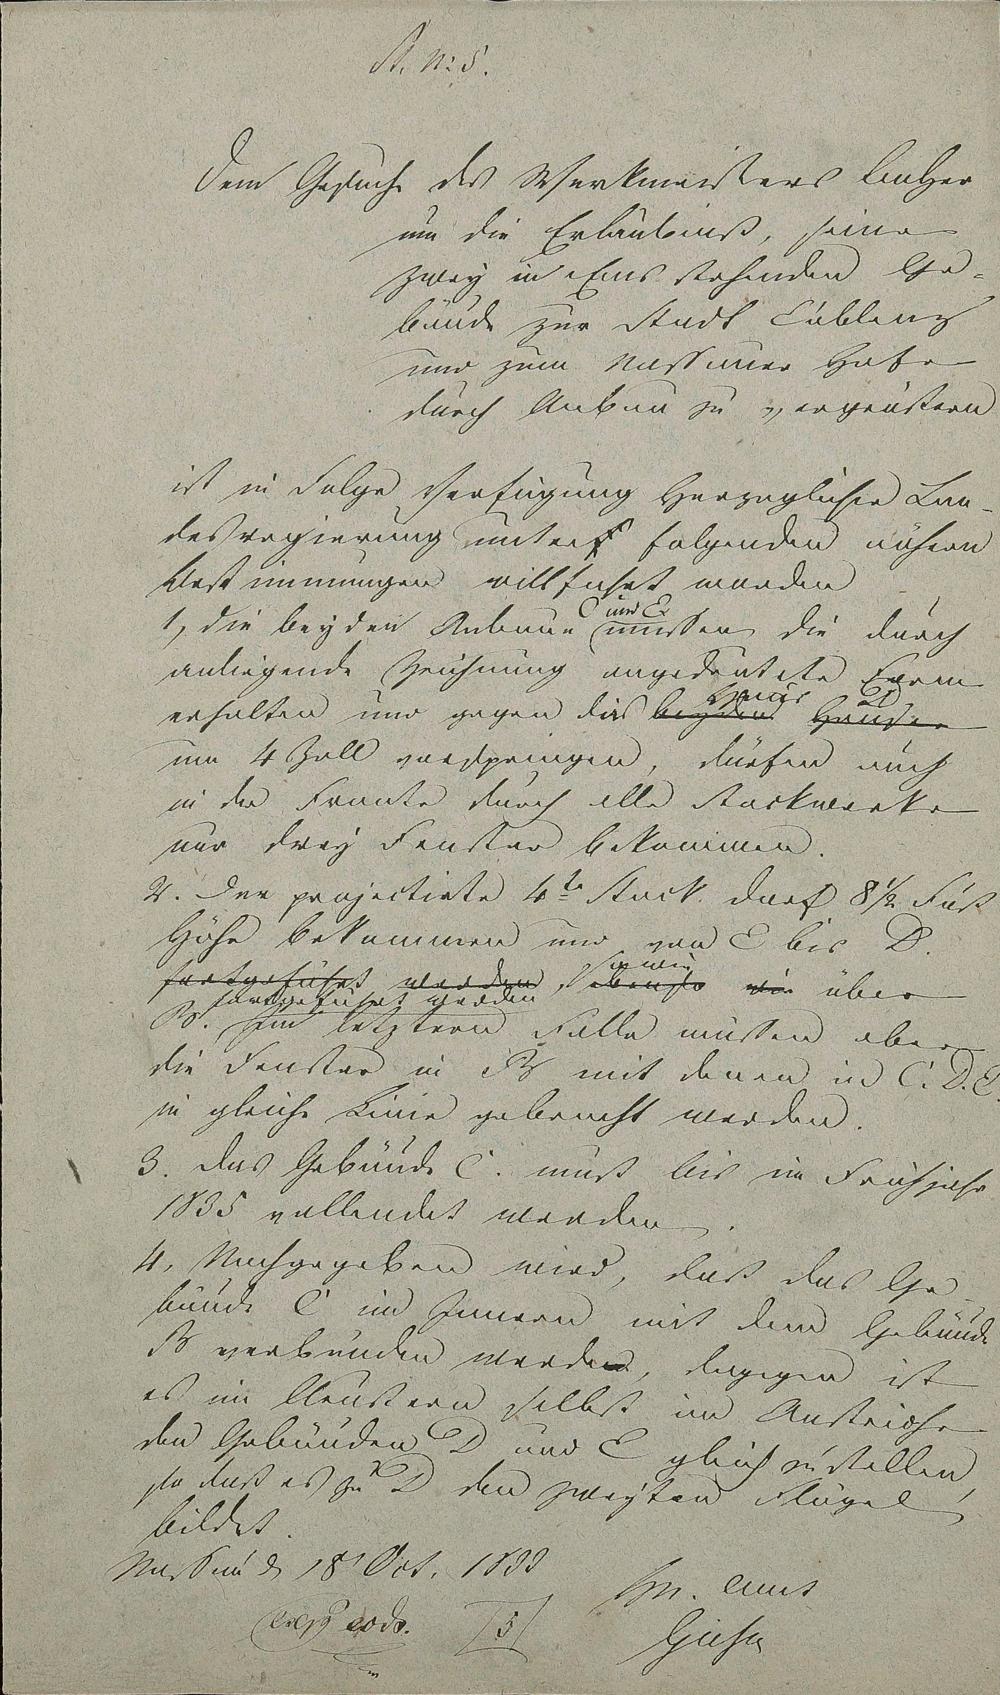 A. N: 5.
Dem Gesuche des Werkmeisters Balzer
um die Erlaubniß, seine
zwey in Ems stehenden Ge-
bäude zur Stadt Coblenz
und zum Nassauer Hofe
durch Anbau zu vergrößern
ist in Folge Verfügung Herzoglicher Lan-
desregierung unter folgenden nähern
Bestimmungen willfahrt worden
1, die beyden Anbaue C und E müssen die durch
anliegende Zeichnung angedeutete Form
erhalten und gegen das beyden Häuser Haus D
um 4 Zoll vorspringen, dürfen auch
in der Fronte durch alle Stockwerke
nur drey Fenster bekommen.
2. Der projectirte 4te Stock darf 8 1/2 Fuß
Höhe bekommen und von C bis D.
fortgeführt werden, ebenso wie sowie über
fortgeführt werden
B. Im letztern Falle müssen aber
die Fenster in B mit denen in C. D. E.
in gleiche Linie gebracht werden.
3. das Gebäude C. muß bis im Frühjahr
1835 vollendet werden.
4, Nachgegeben wird, daß das Ge-
bäude C im Innern mit dem Gebäude
B verbunden werde, dagegen ist
es im Aeußern selbst im Anstriche
den Gebäuden D und E gleich zu stellen,
so daß es zu D den zweyten Flügel
bildet.
Nassau d 18 Oct. 1833
Hzl. Amt
exp eod. 5